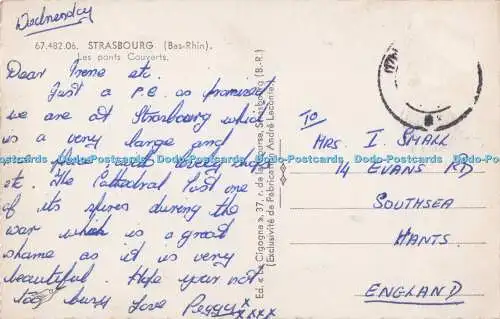 Wednesday
67.482.06. STRASBOURG (Bas-Rhin).
Les ponts Couverts.
Dear Irene etc.
Just a P.C. as promised
we are at Strasbourg which
is a very large and
place
etc. The Cathedral lost one
of its spires during the
war which is a great
shame as it is very
beautiful. Hope your not
too busy Love Peggy x
xxxx
Ed. « La Cigogne », 37, r. de la Course, Strasbourg (B.-R.)
(Exclusivité de Fabrication André Leconte)
TO
MRS. I SMALL
14 EVANS RD
SOUTHSEA
HANTS.
ENGLAND
Dodo-Postcards Dodo-Postcards Dodo-Postcards Dodo-Postcards Dodo-Postcards